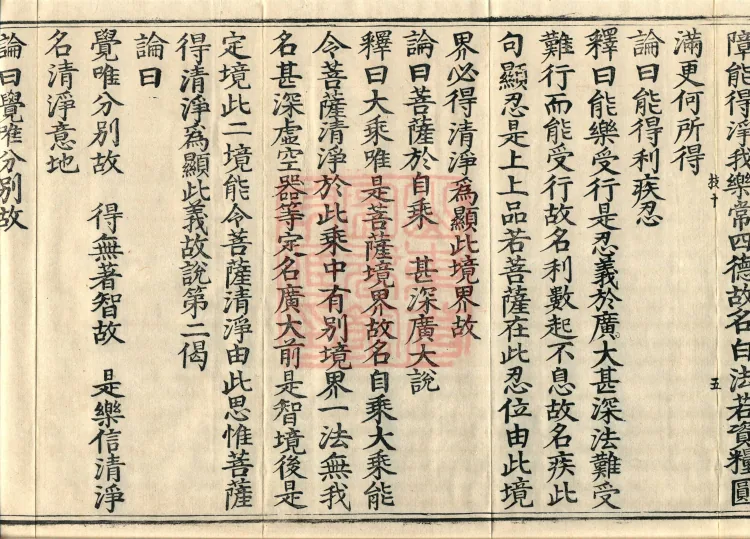 障能得淨我樂常四德故名白法若資糧圓
技十 五
滿更何所得
論曰能得利疾忍
釋曰能樂受行是忍義於廣大甚深法難受
難行而能受行故名利數起不息故名疾此
句顯忍是上上品若菩薩在此忍位由此境
界必得清淨為顯此境界故
論曰菩薩於自乘　甚深廣大說
釋曰大乘唯是菩薩境界故名自乘大乘能
令菩薩清淨於此乘中有別境界一法無我
名甚深虛空器等定名廣大前是智境後是
定境此二境能令菩薩清淨由此思惟菩薩
得清淨為顯此義故說第二偈
論曰
覺唯分別故　得無著智故　是樂信清淨
名清淨意地
論曰覺唯分別故